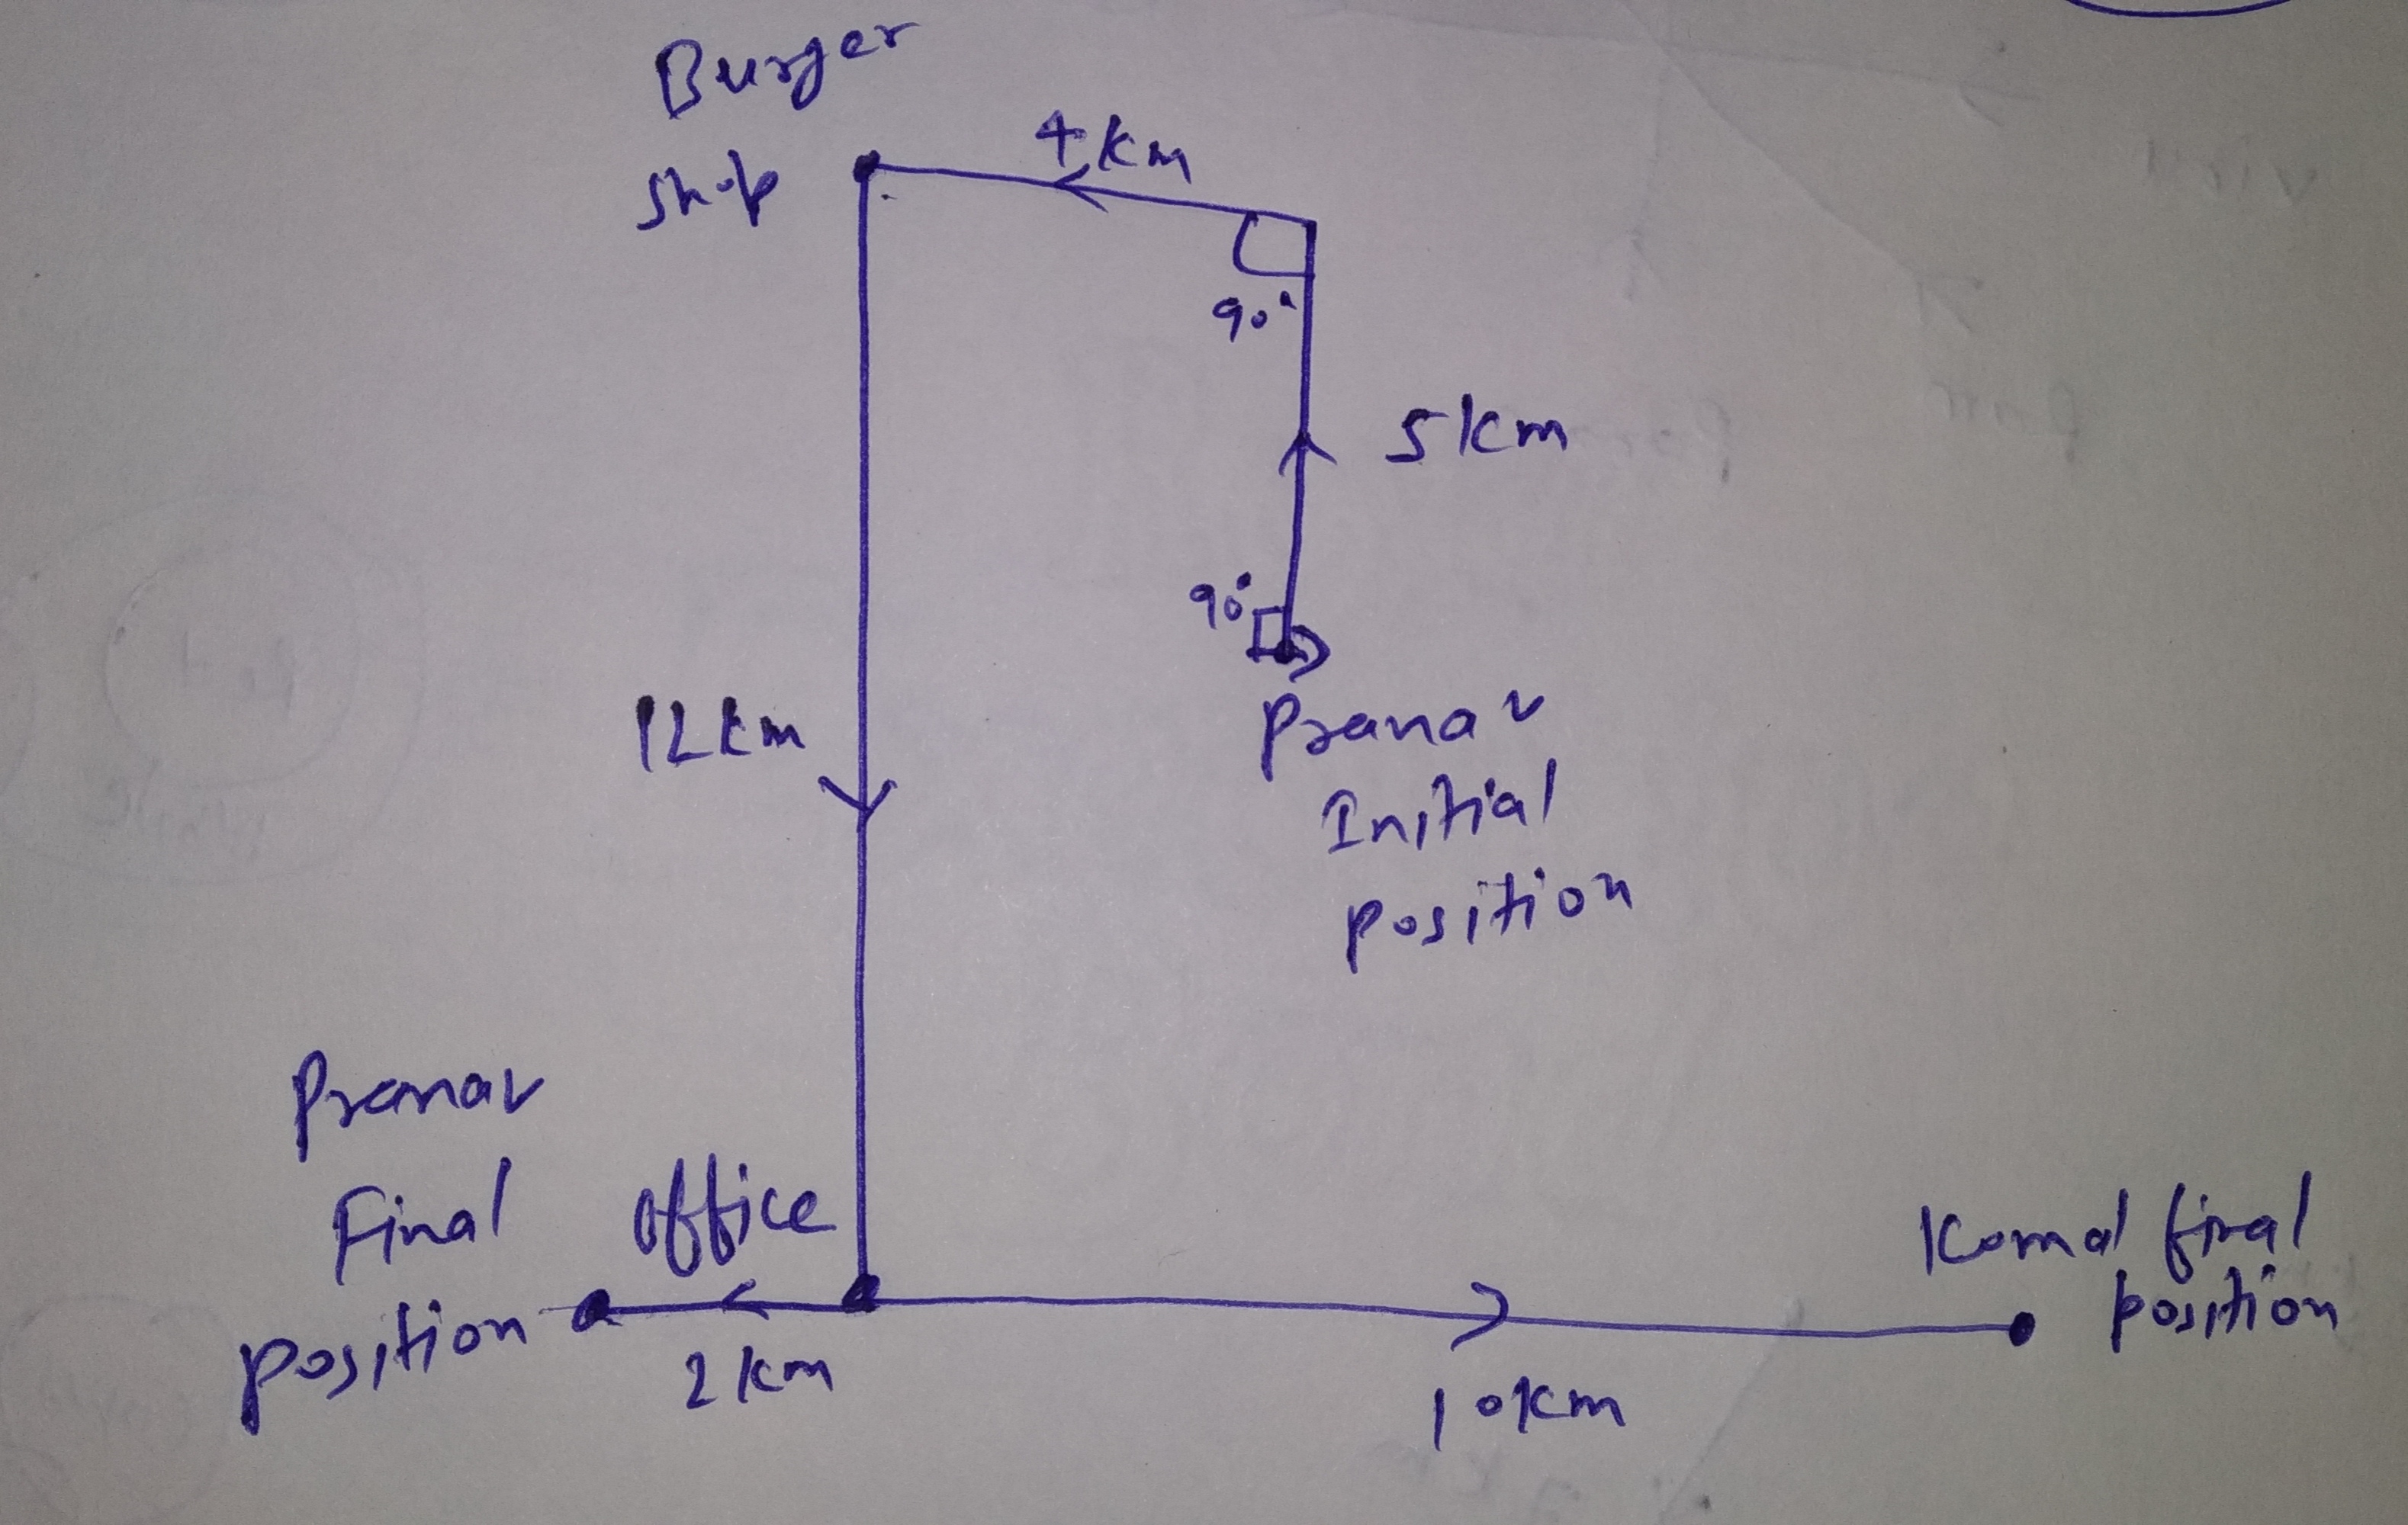 Burger
shop
4 km
90°
5 km
90°
Pranav
Initial
position
12 km
Pranav
Final
position
office
2 km
10 km
Komal final
position